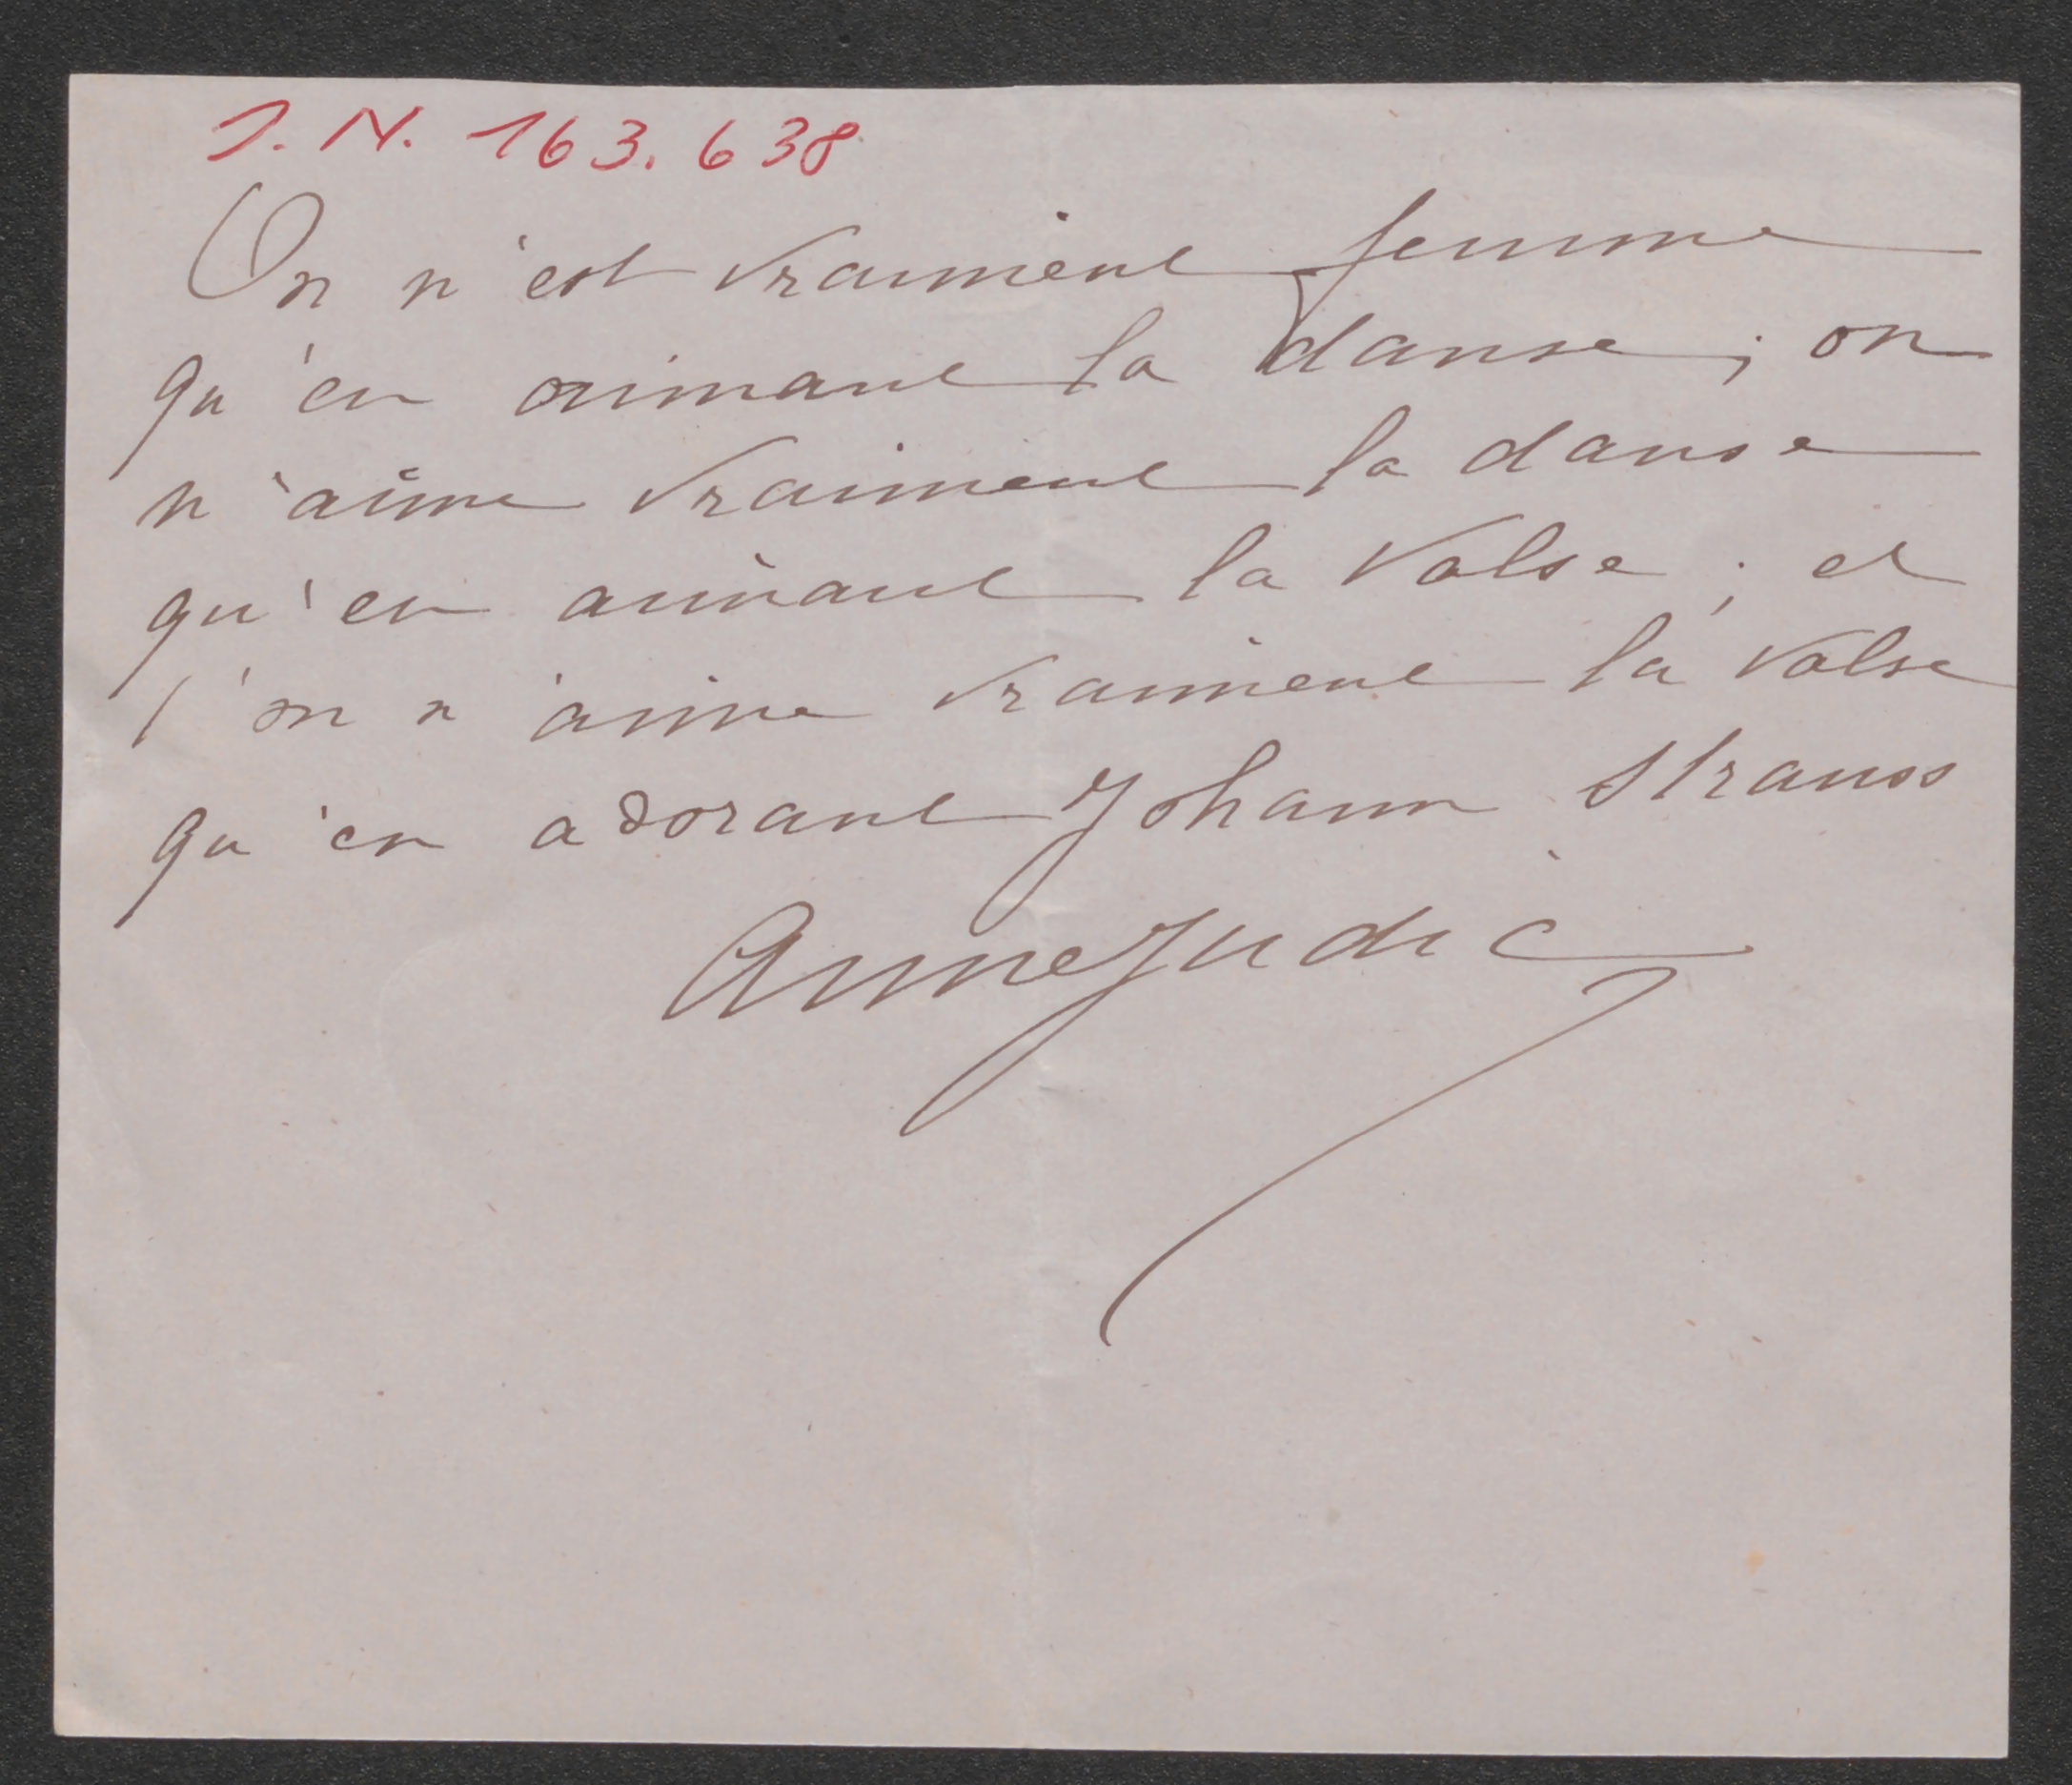 J. N. 163.638
On n'est vraiment femme
qu'en aimant la danse ; on
n'aime vraiment la danse
qu'en aimant la valse ; et
l'on n'aime vraiment la valse
qu'en adorant Johann Strauss
Anna Judic